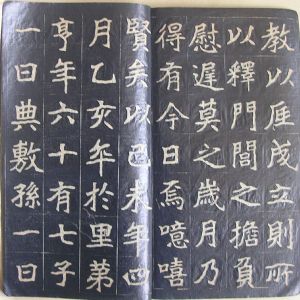 教以厎成立則所
以釋門閭之擔負
慰遲莫之歲月乃
得有今日焉噫嘻
賢矣以己未年四
月乙亥卒於里第
享年六十有七子
一曰典敷孫一曰